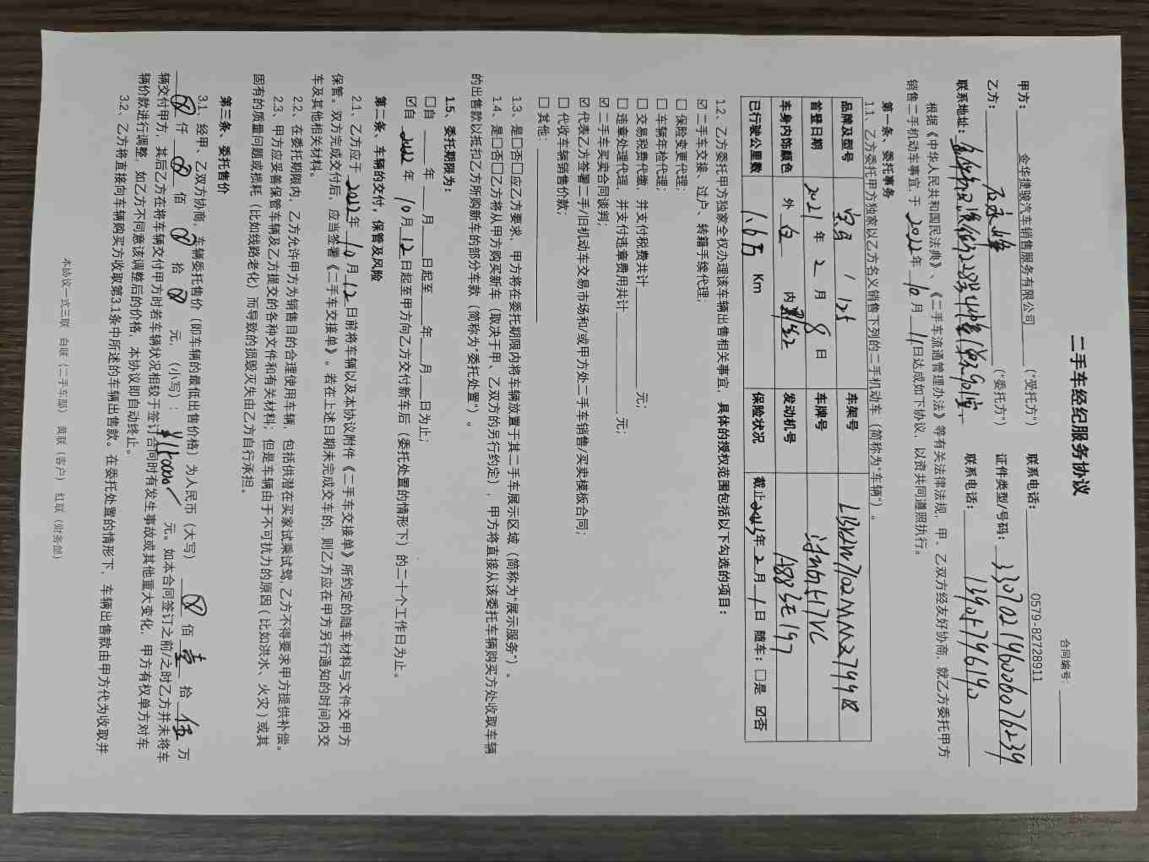 二手车经纪服务协议
合同编号:
甲方: 金华捷骏汽车销售服务有限公司 ("受托方") 联系电话: 0579-82728911
乙方: ("委托方") 证件类型/号码:
联系地址: 联系电话:
根据《中华人民共和国民法典》、《二手车流通管理办法》等有关法律法规,甲、乙双方经友好协商,就乙方委托甲方
销售二手机动车事宜,于2022年10月11日达成如下协议,以资共同遵照执行。
第一条、委托事务
1.1、乙方委托甲方独家以乙方名义销售下列的二手机动车(简称为"车辆")。
品牌及型号 宝马/125 车架号
首登日期 2021年2月8日 车牌号
车身内饰颜色 外 白 内 黑/红 发动机号
已行驶公里数 1.6万 Km 保险状况 截止2023年2月1日 随车:□是 ☑否
1.2、乙方委托甲方独家全权办理该车辆出售相关事宜,具体的授权范围包括以下勾选的项目:
☑二手车交接、过户、转籍手续代理;
□保险变更代理;
□车辆年检代理;
□交易税费代缴,并支付税费共计 元;
□违章处理代理,并支付违章费用共计 元;
☑二手车买卖合同谈判;
☑代表乙方签署二手/旧机动车交易市场和/或甲方处二手车销售/买卖模板合同;
□代收车辆销售价款;
□其他:
1.3、是□否□应乙方要求,甲方将在委托期限内将车辆放置于其二手车展示区域(简称为"展示服务")。
1.4、是□否□乙方将从甲方购买新车(取决于甲、乙双方的另行约定),甲方将直接从该委托车辆购买方处收取车辆
的出售款以抵扣乙方所购新车的部分车款(简称为"委托处置")。
1.5、委托期限为:
□自 年 月 日起至 年 月 日为止;
☑自 2022年10月12日起至甲方向乙方交付新车后(委托处置的情形下)的二十个工作日为止。
第二条、车辆的交付,保管及风险
2.1、乙方应于2022年10月12日前将车辆以及本协议附件《二手车交接单》所约定的随车材料与文件交甲方
保管。双方完成交付后,应当签署《二手车交接单》,若在上述日期未完成交车的,则乙方应在甲方另行通知的时间内交
车及其他相关材料。
2.2、在委托期限内,乙方允许甲方为销售目的合理使用车辆,包括供潜在买家试乘试驾,乙方不得要求甲方提供补偿。
2.3、甲方应妥善保管车辆及乙方提交的各种文件和有关材料;但是车辆由于不可抗力的原因(比如洪水、火灾)或其
固有的质量问题或损耗(比如线路老化)而导致的损毁灭失由乙方自行承担。
第三条、委托售价
3.1、经甲、乙双方协商,车辆委托售价(即车辆的最低出售价格)为人民币(大写) 佰 壹 拾 伍 万
仟 佰 拾 元,(小写): ¥150000 元。如本合同签订之前/之时乙方并未将车
辆交付甲方,其后乙方在将车辆交付甲方时若车辆状况相较于签订合同时有发生事故或其他重大变化,甲方有权单方对车
辆价款进行调整,如乙方不同意该调整后的价格,本协议即自动终止。
3.2、乙方将直接向车辆购买方收取第3.1条中所述的车辆出售款。在委托处置的情形下,车辆出售款由甲方代为收取并
本协议一式三联 白联(二手车部) 黄联(客户) 红联(财务部)